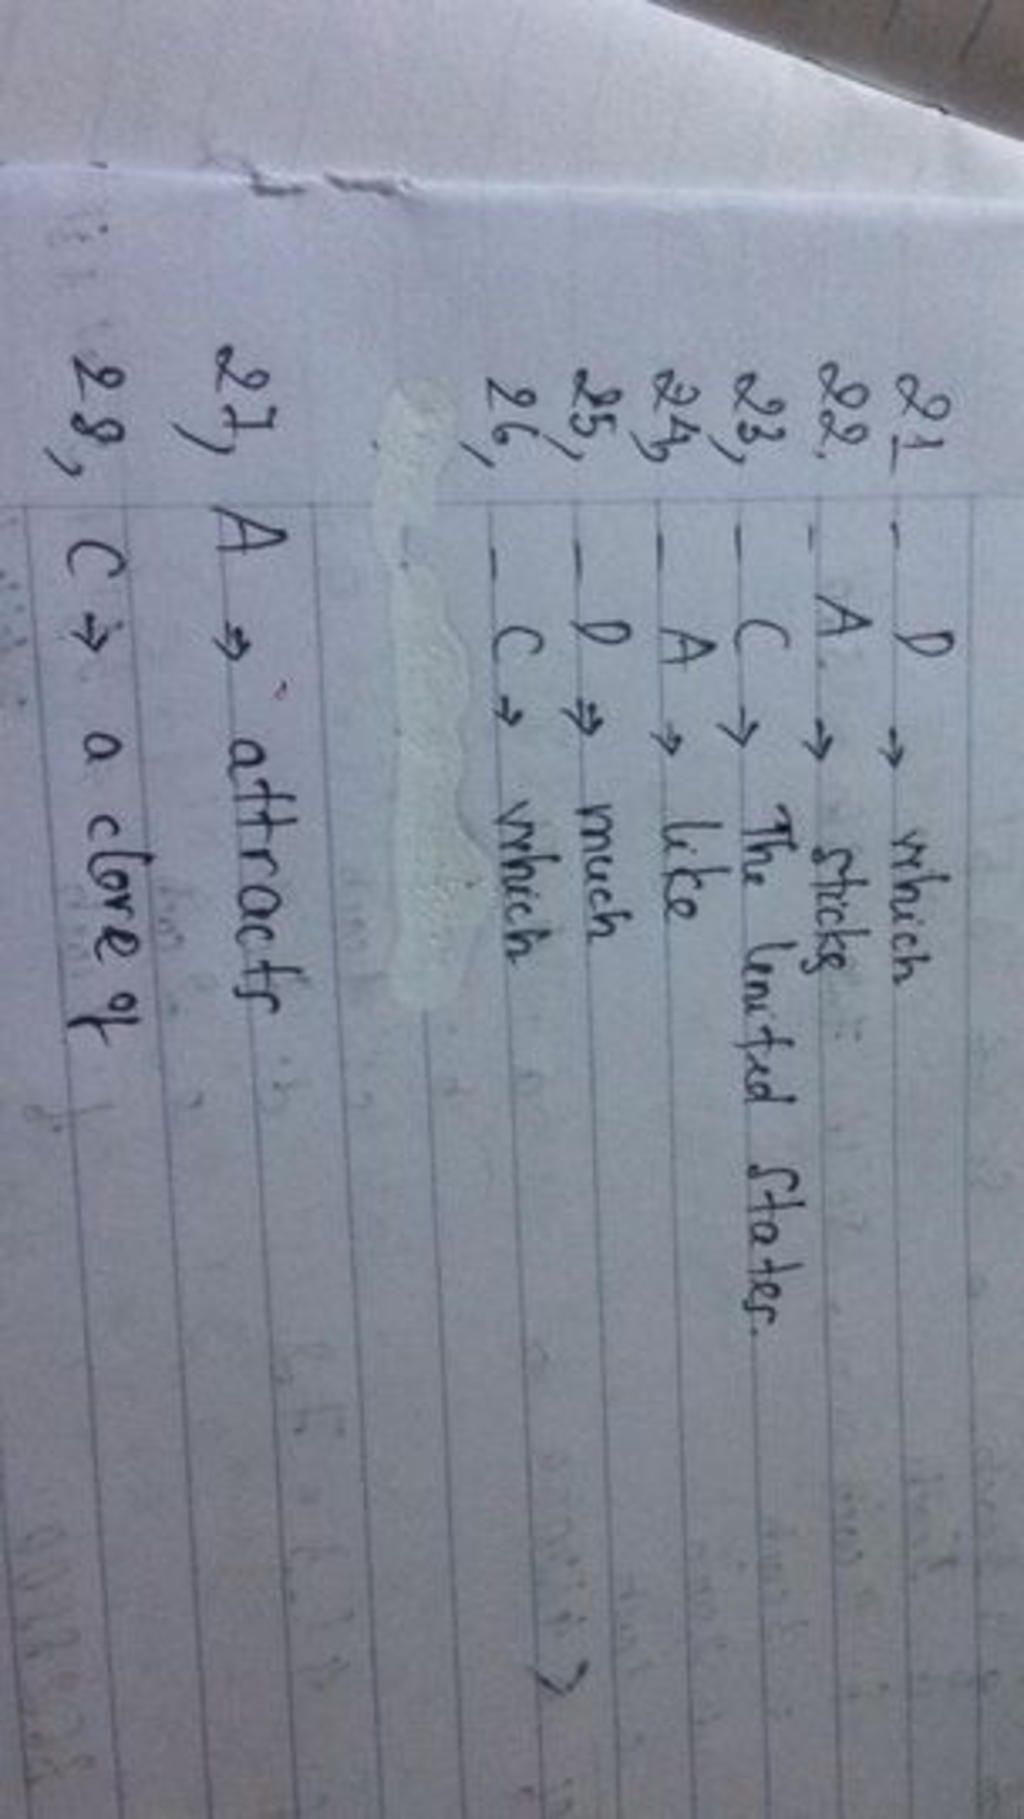 21 - D → which
22. - A. → sticks
23, - C → The United States.
24, - A → like
25, - D → much
26, - C → which
27, A → attracts
28, C → a clove of